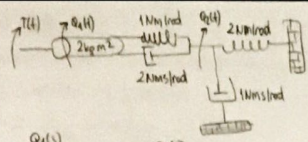 T(t) Q₁(t) 1Nm/rad Q₂(t) 2Nm/rad
2kgm²
2Nms/rad 1Nms/rad